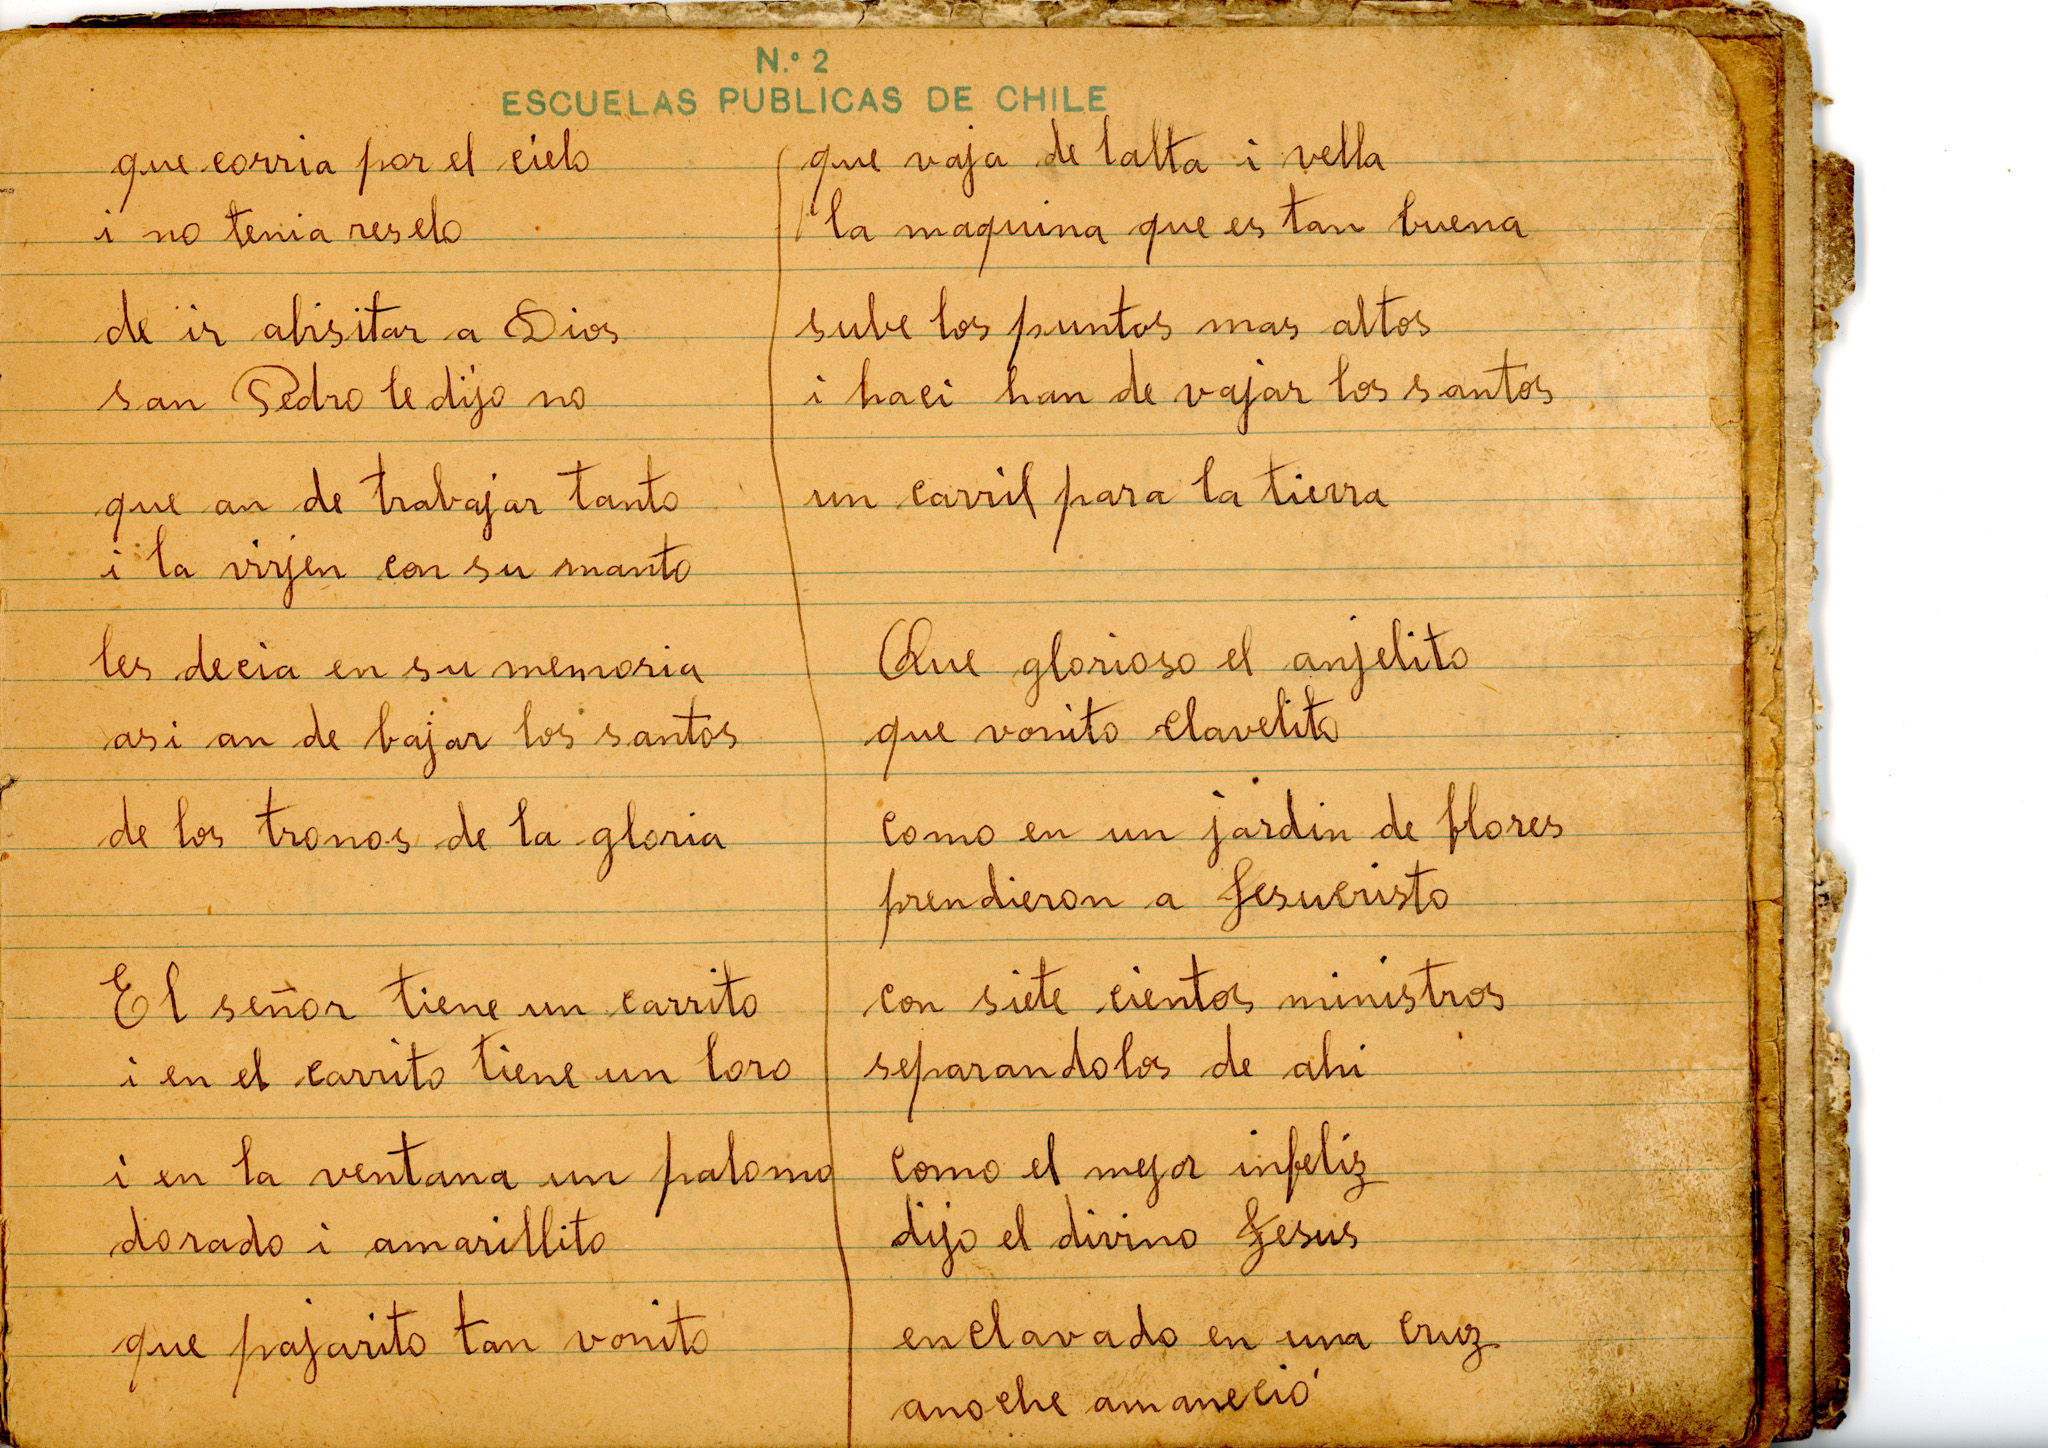 N.º 2
ESCUELAS PUBLICAS DE CHILE
que corria por el cielo
i no tenia reselo
de ir abisitar a Dios
san Pedro le dijo no
que an de trabajar tanto
i la virjen con su manto
les decia en su memoria
asi an de bajar los santos
de los tronos de la gloria
El señor tiene un carrito
i en el carrito tiene un loro
i en la ventana un palomo
dorado i amarillito
que pajarito tan vonito
que vaja de lalta i vella
la maquina que es tan buena
sube los puntos mas altos
i haci han de vajar los santos
un carril para la tierra
Que glorioso el anjelito
que vonito clavelito
como en un jardin de flores
prendieron a Jesucristo
con siete cientos ministros
separandolos de ahi
como el mejor infeliz
dijo el divino Jesus
enclavado en una cruz
anoche amaneció